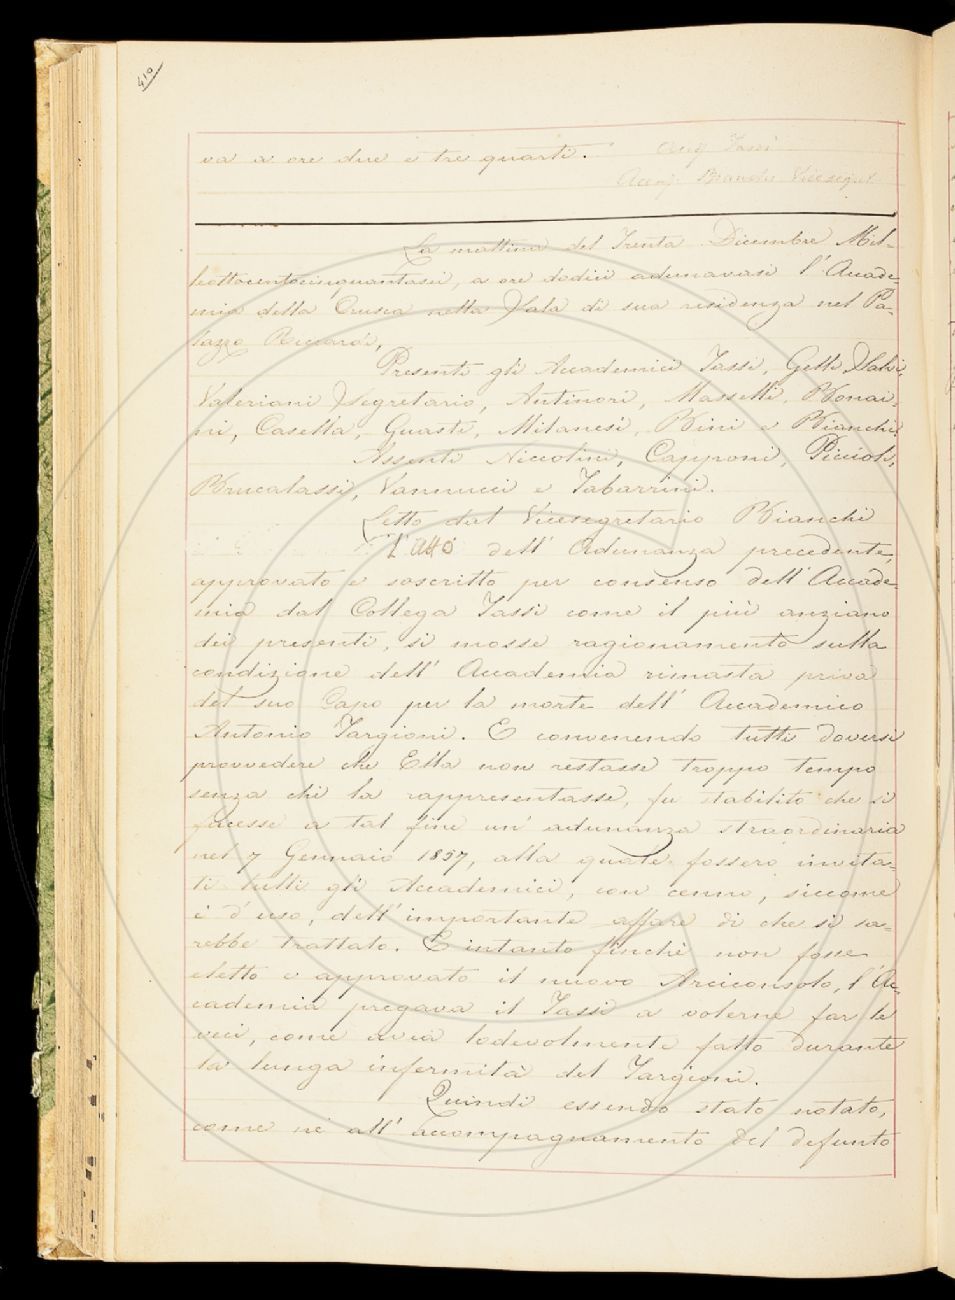 410
va a ore due e tre quarti.
Tassi
Bianchi Vicesegret.
La mattina del Trenta Dicembre Mil-
leottocentocinquantasei, a ore dodici adunavasi l'Accade-
mia della Crusca nella Sala di sua residenza nel Pa-
lazzo Riccardi,
Presenti gli Accademici Tassi, Gelli,
Valeriani Segretario, Antinori, Masselli, Bonai-
ni, Casella, Guasti, Milanesi, Bini e Bianchi.
Assenti Niccolini, Capponi, Piccioli,
Brucalassi, Vannucci e Tabarrini.
Letto dal Vicesegretario Bianchi
l'Atto dell'Adunanza precedente,
approvato e soscritto per consenso dell'Accade-
mia dal Collega Tassi come il più anziano
dei presenti, si mosse ragionamento sulla
condizione dell'Accademia rimasta priva
del suo Capo per la morte dell'Accademico
Antonio Targioni. E convenendo tutti doversi
provvedere che Ella non restasse troppo tempo
senza chi la rappresentasse, fu stabilito che si
facesse a tal fine un'adunanza straordinaria
nel 7 Gennaio 1857, alla quale fossero invita-
ti tutti gli Accademici, con cenno, siccome
è d'uso, dell'importante affare di che si sa-
rebbe trattato. E intanto finchè non fosse
eletto e approvato il nuovo Arciconsolo, l'Ac-
cademia pregava il Tassi a volerne far le
veci, come avea lodevolmente fatto durante
la lunga infermità del Targioni.
Quindi essendo stato notato,
come nè all'accompagnamento del defunto